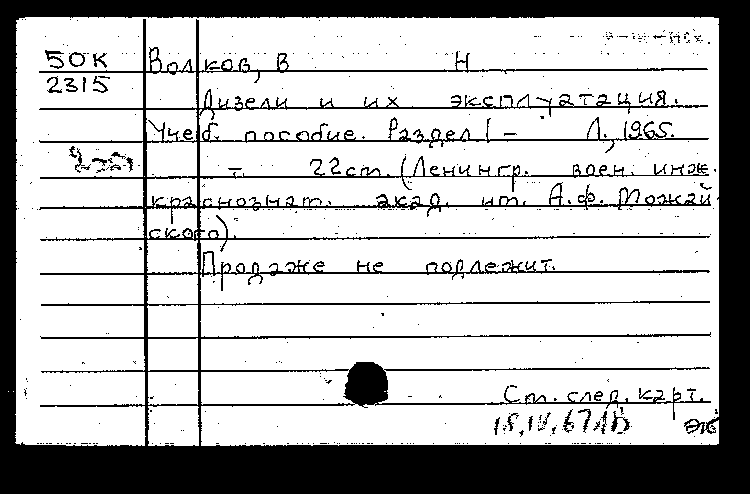 50К Волков, В Н
2315
Дизели и их эксплуатация.
Учеб. пособие. Раздел I – Л., 1965.
т. 22см. (Ленингр. воен. инж.
краснознам. акад. им. А.Ф. Можай
ского).
Продаже не подлежит.
См. след. карт.
18.IV.67